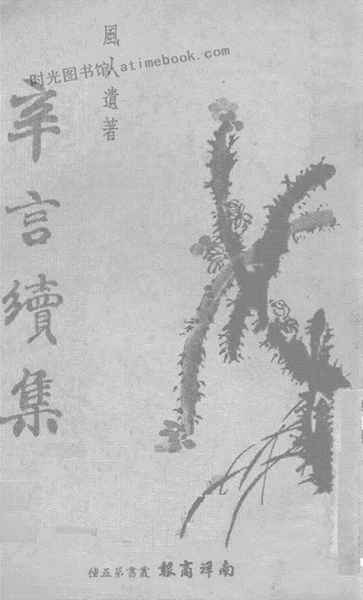 風人遺著
时光图书馆 atimebook.com
辛言續集
南洋商報 叢書第五種